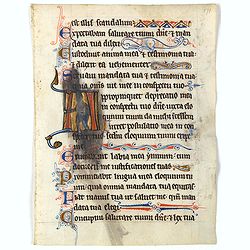 est illis scandalum
Expectabam salutare tuum dñe et man
data tua dilexi
Custodivit anima mea testimonia tua
et dilexit ea vehementer
Servavi mandata tua et testimonia tua
quia omnes vie mee in conspectu tuo
Appropinquet deprecatio mea
in conspectu tuo dñe iuxta elo
quium tuum da michi intellectum
Intret postulatio mea in con
spectu tuo secundum eloquium
tuum eripe me
Eructabunt labia mea ymnum cum
docueris me iustificationes tuas
Pronuntiabit lingua mea eloquium
tuum quia omnia mandata tua equitas
Fiat manus tua ut salvet me quoniam man
data tua elegi
Concupivi salutare tuum dñe et lex tua